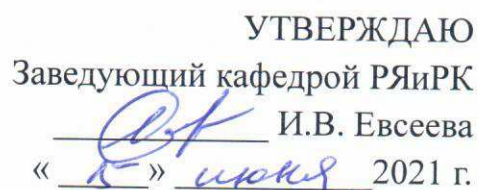 УТВЕРЖДАЮ
Заведующий кафедрой РЯиРК
И.В. Евсеева
« » июня 2021 г.